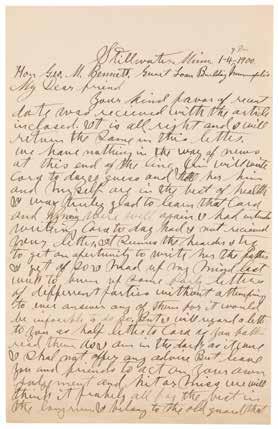 Stillwater, Minn 1-4 1900
Hon Geo. M. Bennett, Guart Loan Building Minneapolis
My Dear friend
Your Kind favor of recent
date was received with the article
inclosed. It is all right and I will
return the same in this letter
we have nothing in the way of news
at this end of the line. Jim will write
Cora to day I guess and tell her him
and my self are in the best of health
I was truly glad to learn that Cora
and were well again I had
writing Cora to day had I not received
your letter. the I try
to get an opertunity to write her the
I get I made up my mind last
week to burn up some letters
of different parties without attempting
to even answer any of them for it would
be to do so. But I will regard a letter
to you as half letter to Cora as you
read them as I am in the dark as it were
I shal not offer any advice But leave
you and friends to act on your own
judgement and hit or miss we will
think it all for the best in
the long run I belong to the old guard that